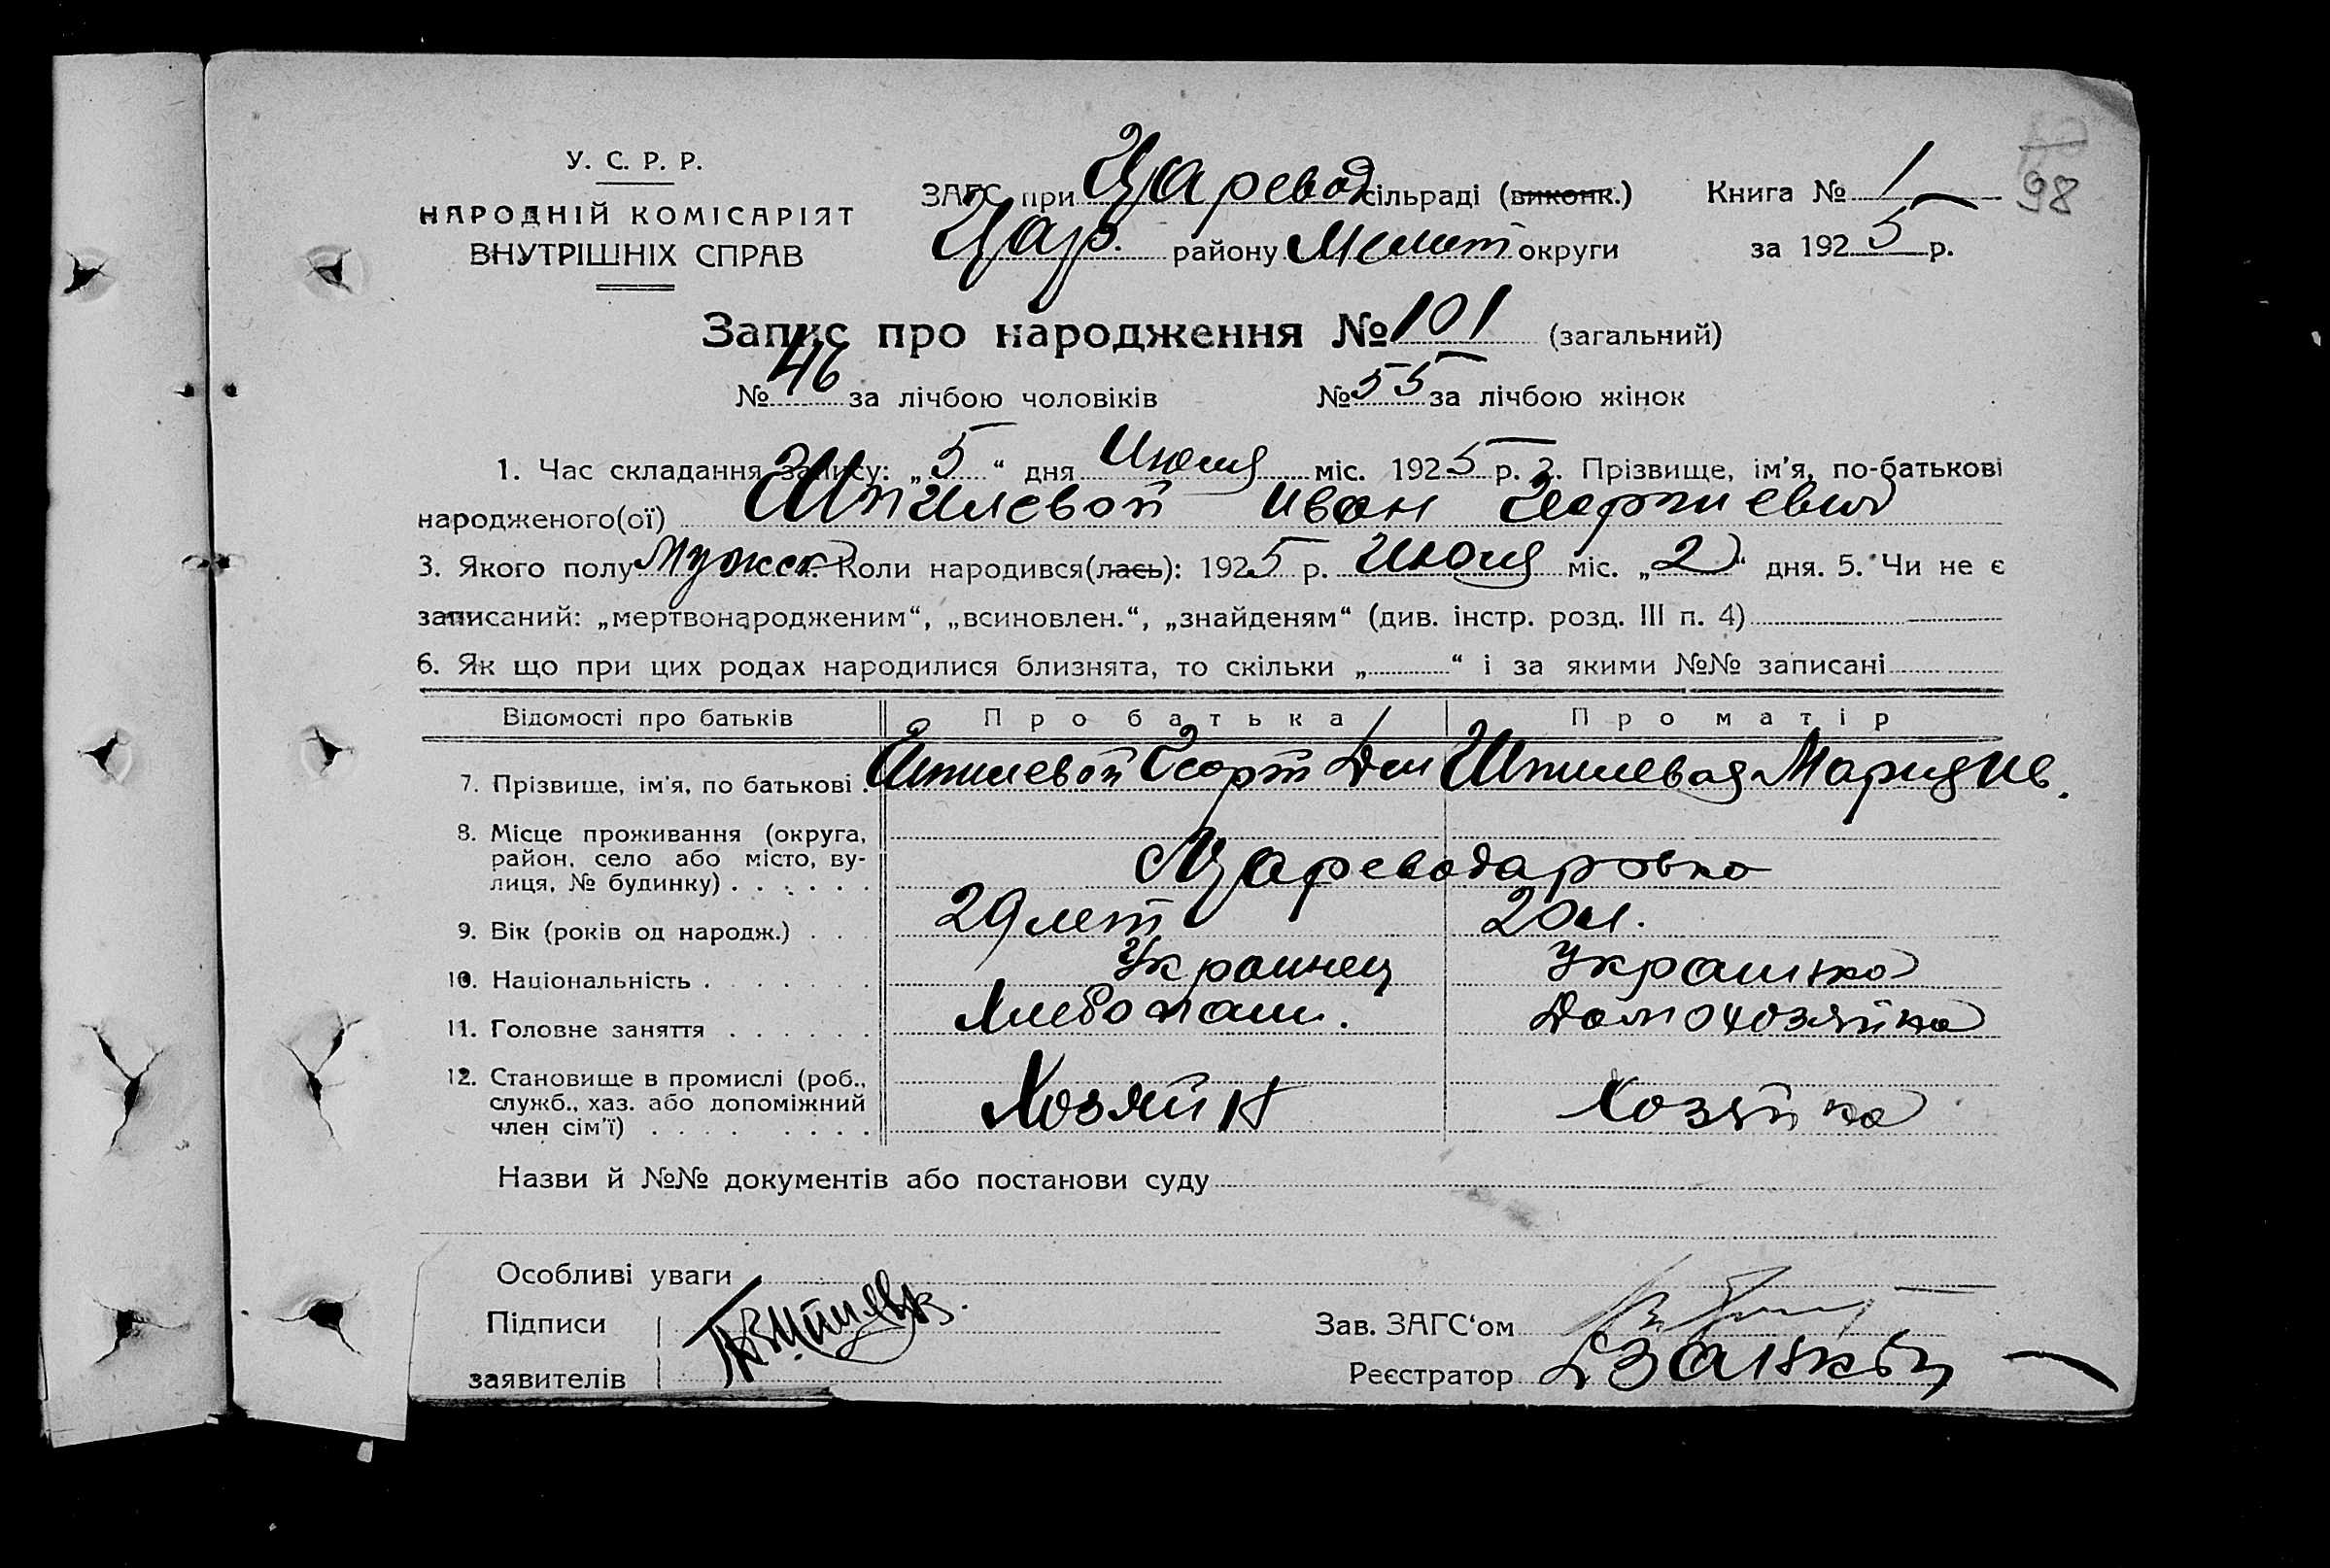 У. С. Р. Р.
НАРОДНІЙ КОМІСАРІЯТ
ВНУТРІШНІХ СПРАВ
ЗАГС при Царевод сільраді (виконк.)
Цар. району Мелит округи
Книга № 1
за 1925 р.
98
Запис про народження № 101 (загальний)
№ 46 за лічбою чоловіків № 55 за лічбою жінок
1. Час складання запису: „5“ дня Июля міс. 1925 р. 2. Прізвище, ім'я, по-батькові
народженого(ої) Шпилевой Иван Георгиевич
3. Якого полу Мужск. Коли народився(лась): 1925 р. Июля міс. „2“ дня. 5. Чи не є
записаний: „мертвонародженим“, „всиновлен.“, „знайденям“ (див. інстр. розд. III п. 4)
6. Як що при цих родах народилися близнята, то скільки „ “ і за якими №№ записані
Відомості про батьків Про батька Про матір
7. Прізвище, ім'я, по батькові . Шпилевой Георг Дем Шпилевая Мария Ив.
8. Місце проживання (округа,
район, село або місто, ву-
лиця, № будинку) . . . . . . Цареводаровка
9. Вік (років од народж.) . . . 29 лет 20 л.
10. Національність . . . . . . . Украинец Украинка
11. Головне заняття . . . . . . Хлебопаш. Домохозяйка
12. Становище в промислі (роб.,
служб., хаз. або допоміжний
член сім'ї) . . . . . . . . Хозяин Хозяйка
Назви й №№ документів або постанови суду
Особливі уваги
Підписи
заявителів
Зав. ЗАГС‘ом
Реєстратор